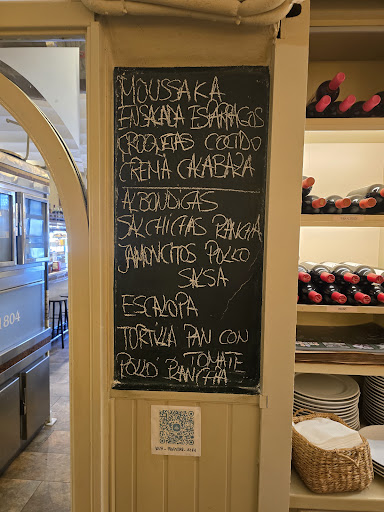 MOUSSAKA
ENSALADA ESPÁRRAGOS
CROQUETAS COCIDO
CREMA CALABAZA
ALBONDIGAS
SALCHICHAS PLANCHA
JAMONCITOS POLLO
SALSA
ESCALOPA
TORTILLA PAN CON
TOMATE
POLLO PLANCHA
1804